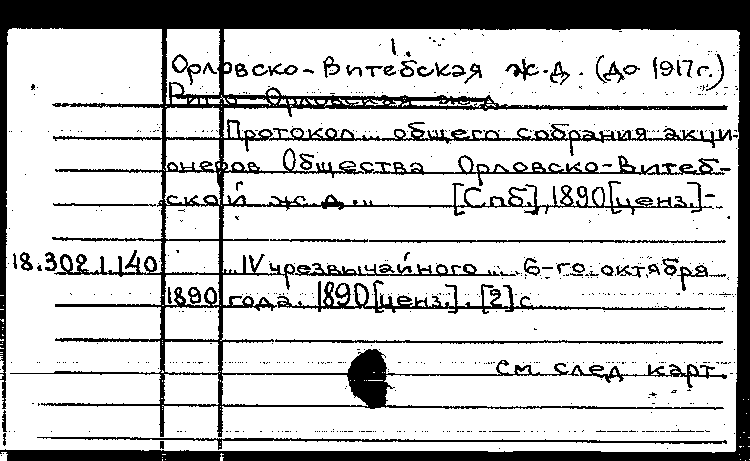 1.
Орловско-Витебская ж.д. (до 1917г.)
Риго-Орловская ж.д.
Протокол... общего собрания акци-
онеров Общества Орловско-Витеб-
ской ж.д... [Спб.], 1890[ценз.]-
18.302.1.140 ...IV чрезвычайного ... 6-го октября
1890 года. 1890[ценз.]. [2]с
см. след карт.